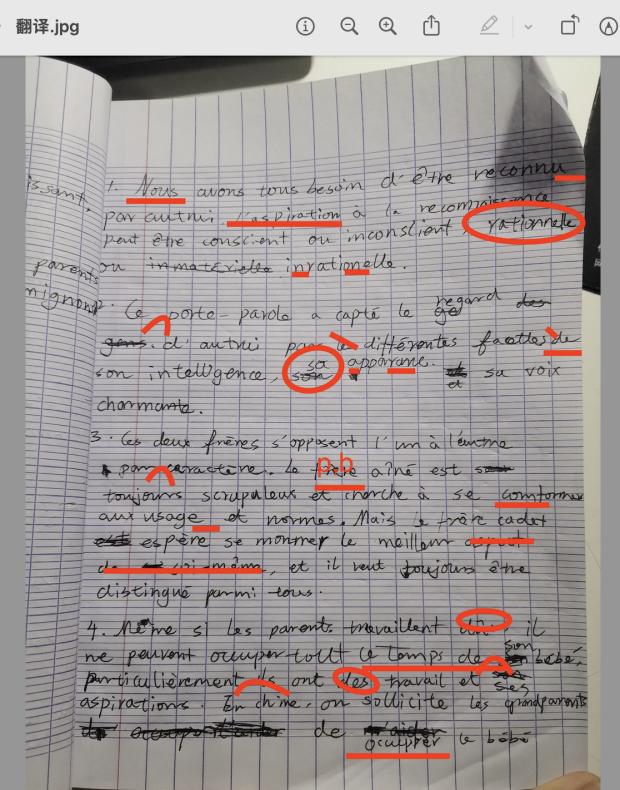 翻译.jpg
issant.
parents
mignons
1. Nous avons tous besoin d'être reconnu
par autrui. L'aspiration à la reconnaissance
peut être conscient ou inconscient, rationnelle
ou inmatérielle inrationelle.
2. Ce porte-parole a capté le regard des
gens. d'autrui par le différentes facettes de
son intelligence, sa apparence. et sa voix
charmante.
3. Ces deux frères s'opposent l'un à l'autre
par caractère. Le frère aîné est
pb
toujours scrupuleux et cherche à se comformer
aux usage et normes. Mais le frère cadet
espère se montrer le meilleur aspect
de soi-même, et il veut toujours être
distingué parmi tous.
4. Même si les parents travaillent dur, il
ne peuvent occuper tout le temps de son bébé,
particulièrement ils ont des travail et ses
aspirations. En chine, on sollicite les grandparents
de occuper le bébé